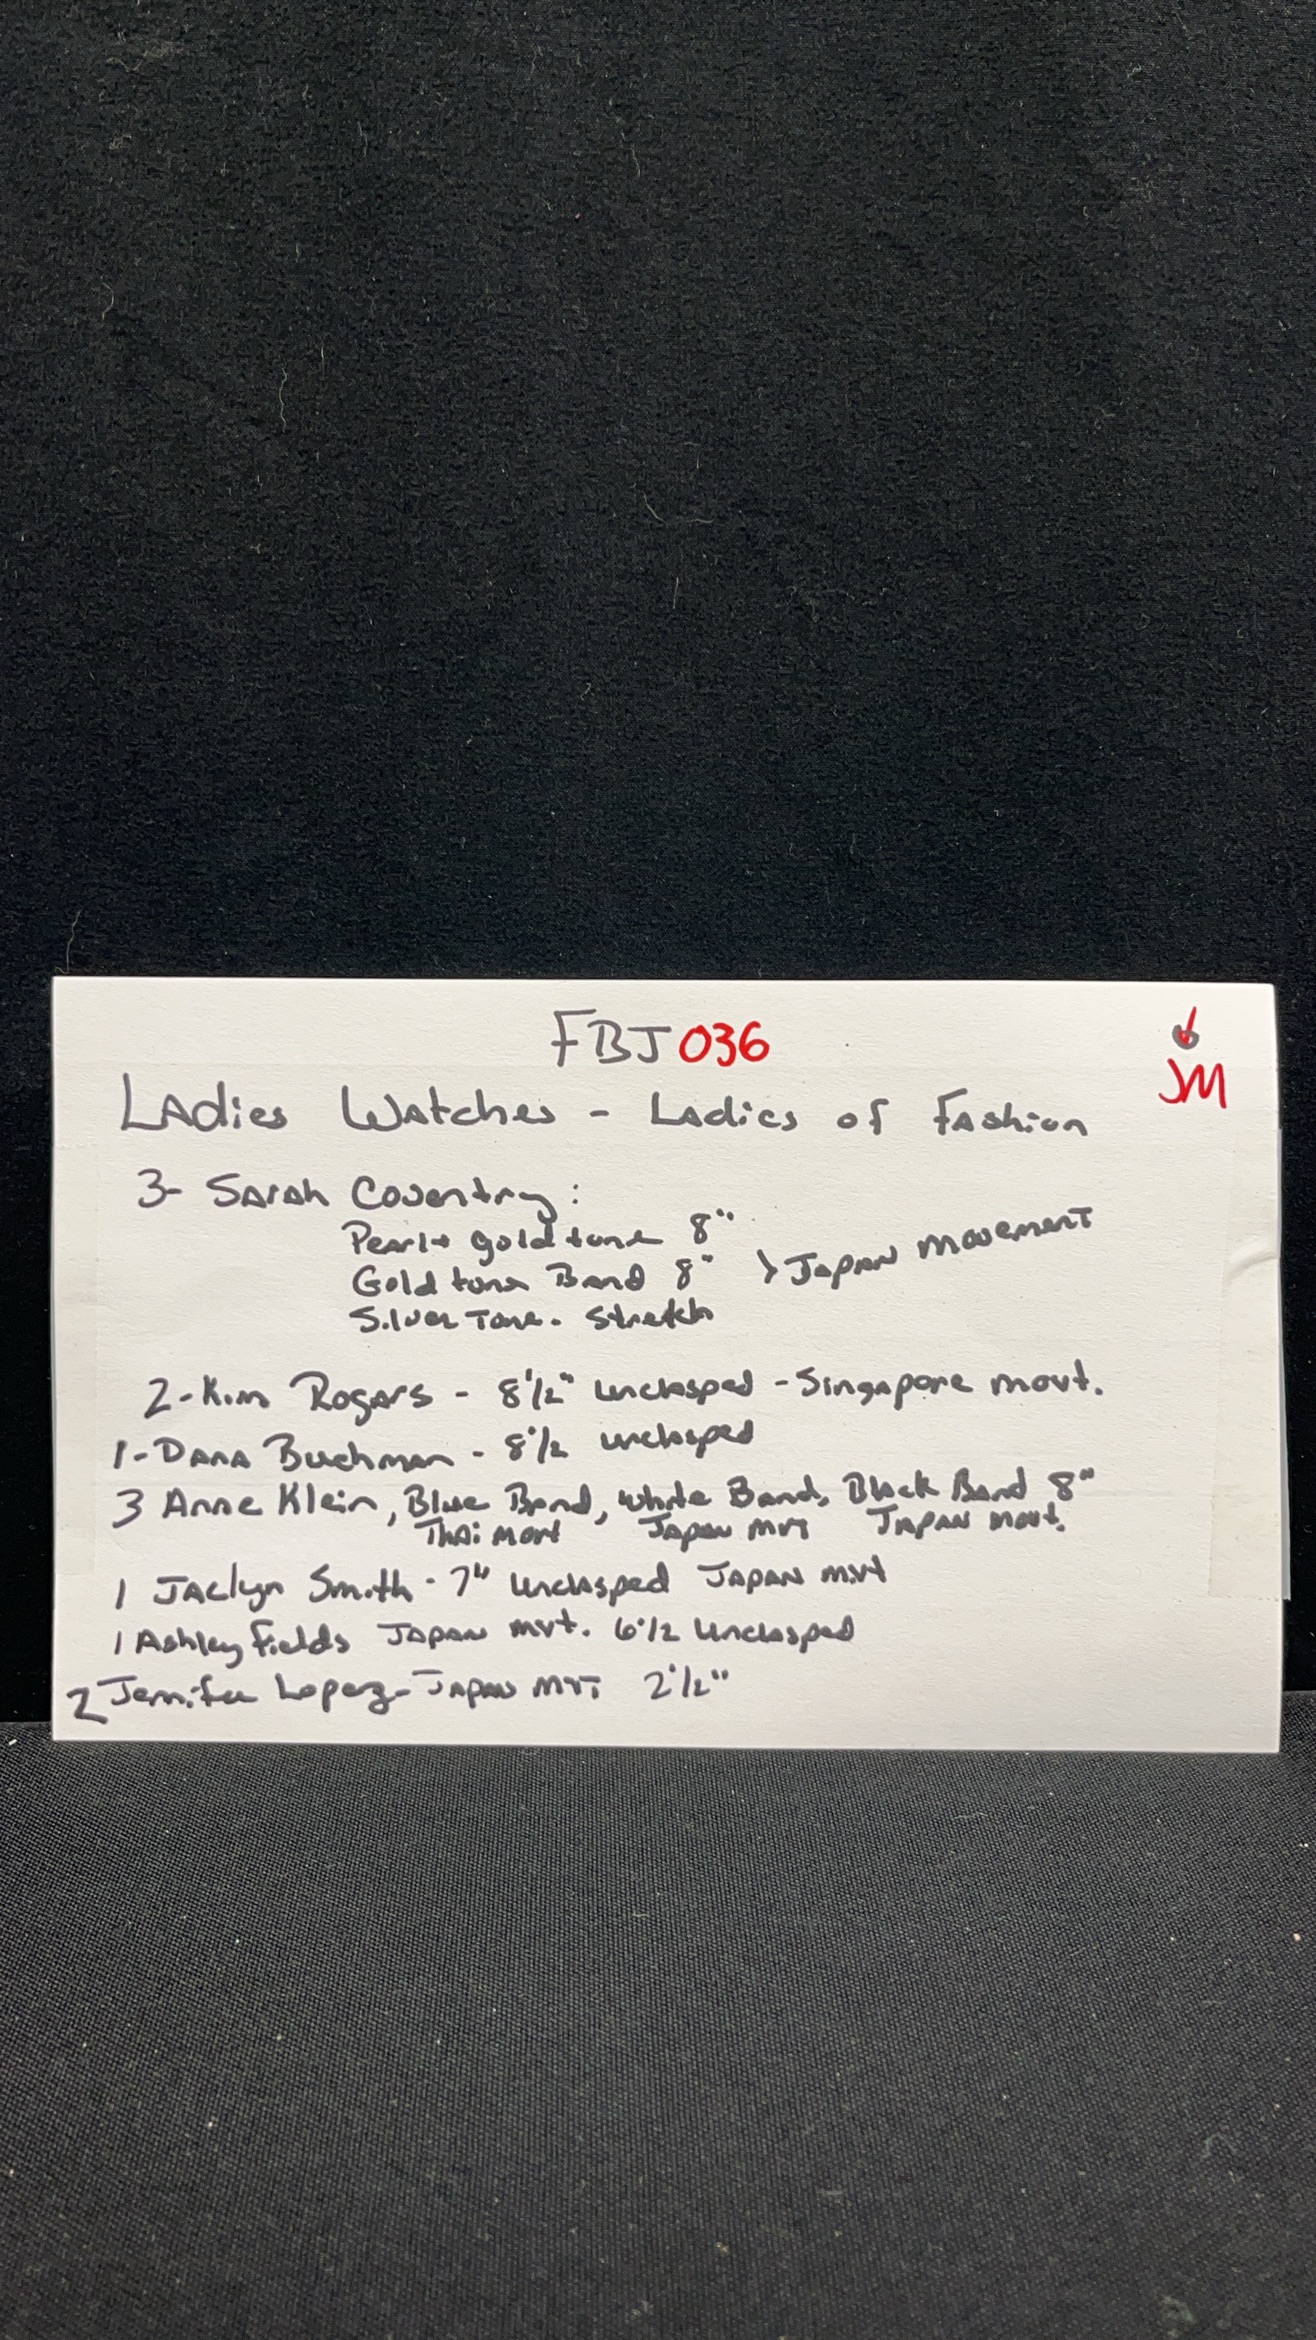 FBJ 036
JM
Ladies Watches - Ladies of Fashion
3- Sarah Coventry:
Pearl + goldtone 8"
Goldtone Band 8" > Japan movement
Silver Tone. Stretch
2-Kim Rogers - 8 1/2" unclasped - Singapore movt.
1-Dana Buchman - 8 1/2 unclasped
3 Anne Klein, Blue Band, white Band, Black Band 8"
Thai movt Japan mvt Japan movt.
1 Jaclyn Smith - 7" unclasped Japan mvt
1 Ashley Fields Japan mvt. 6 1/2 unclasped
2 Jennifer Lopez - Japan mvt 2 1/2"